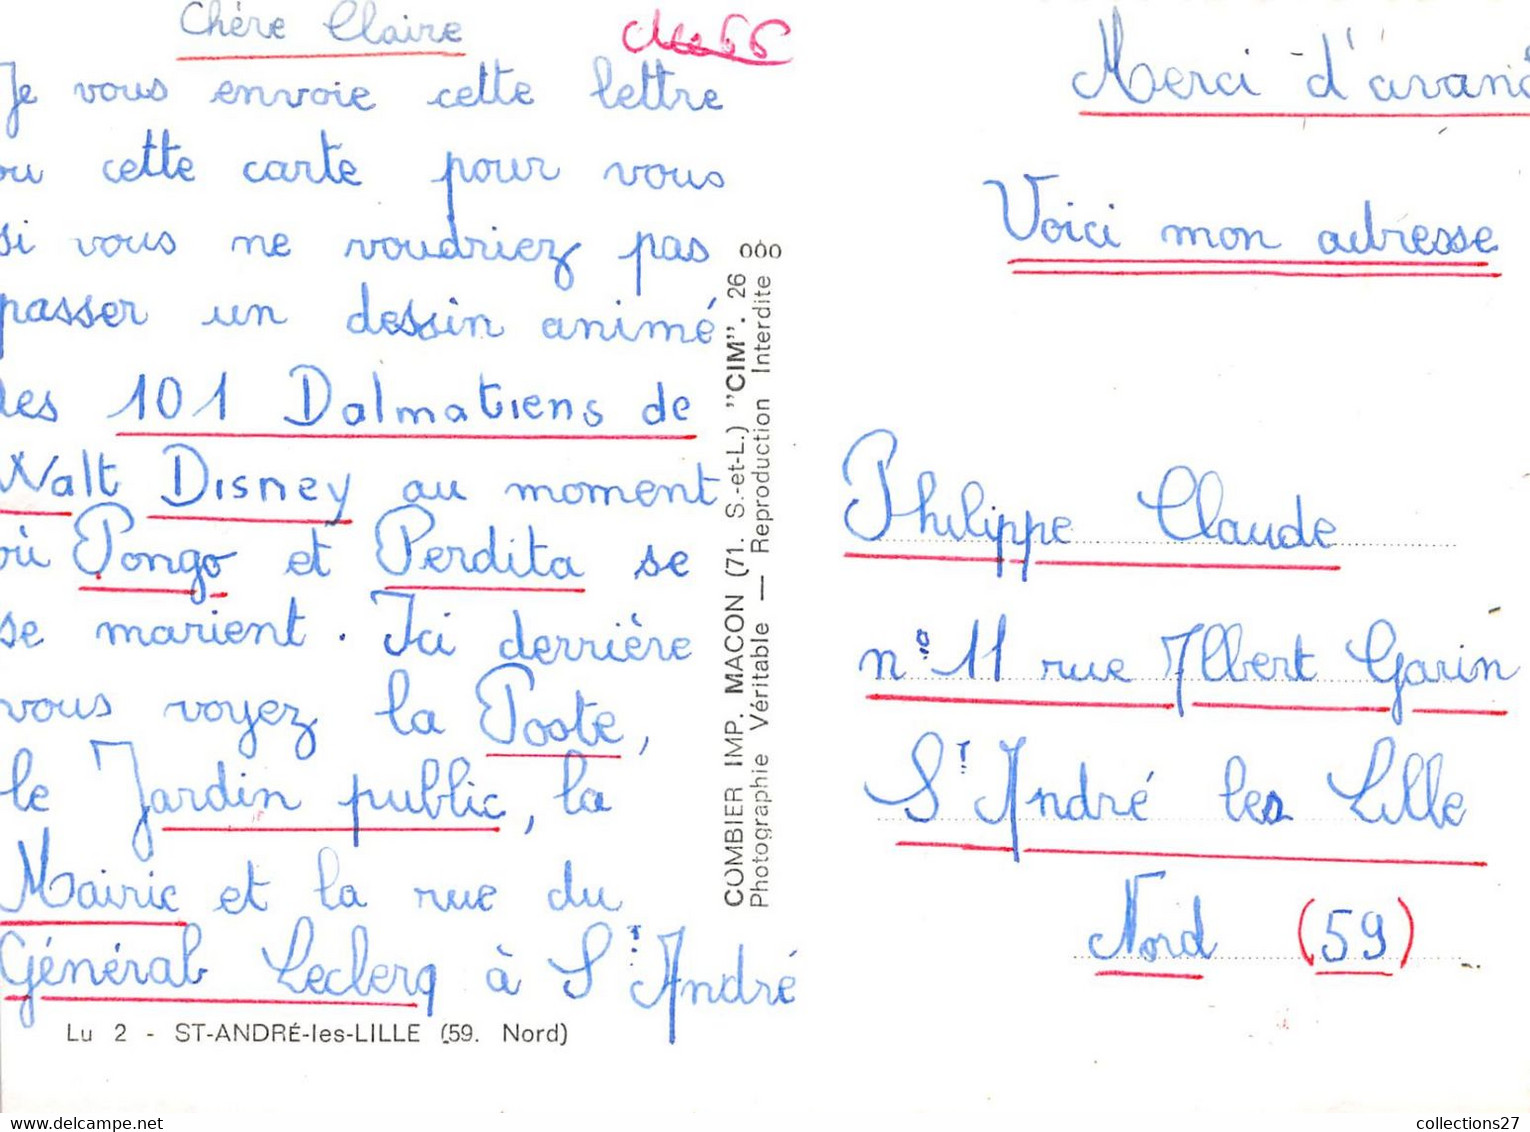 Chère Claire
Je vous envoie cette lettre
ou cette carte pour vous
si vous ne voudriez pas
passer un dessin animé
les 101 Dalmatiens de
Walt Disney au moment
où Pongo et Perdita se
se marient. Ici derrière
vous voyez la Poste,
le Jardin public, la
Mairie et la rue du
Général Leclerq à St André
Lu 2 - ST-ANDRÉ-les-LILLE (59. Nord)
COMBIER IMP. MACON (71. S.-et-L.) "CIM". 26
Photographie Véritable — Reproduction Interdite
Merci d'avanc
Voici mon adresse
Philippe Claude
n° 11 rue Albert Garin
St André les Lille
Nord (59)
collections27